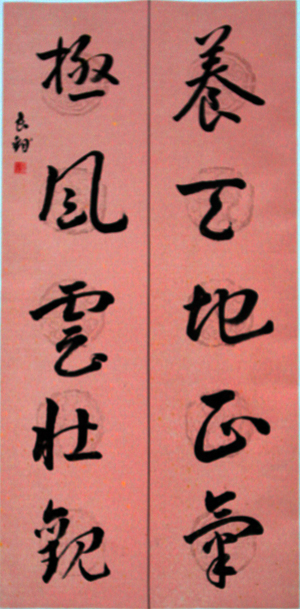 養天地正氣
極風雲壯觀
良翔